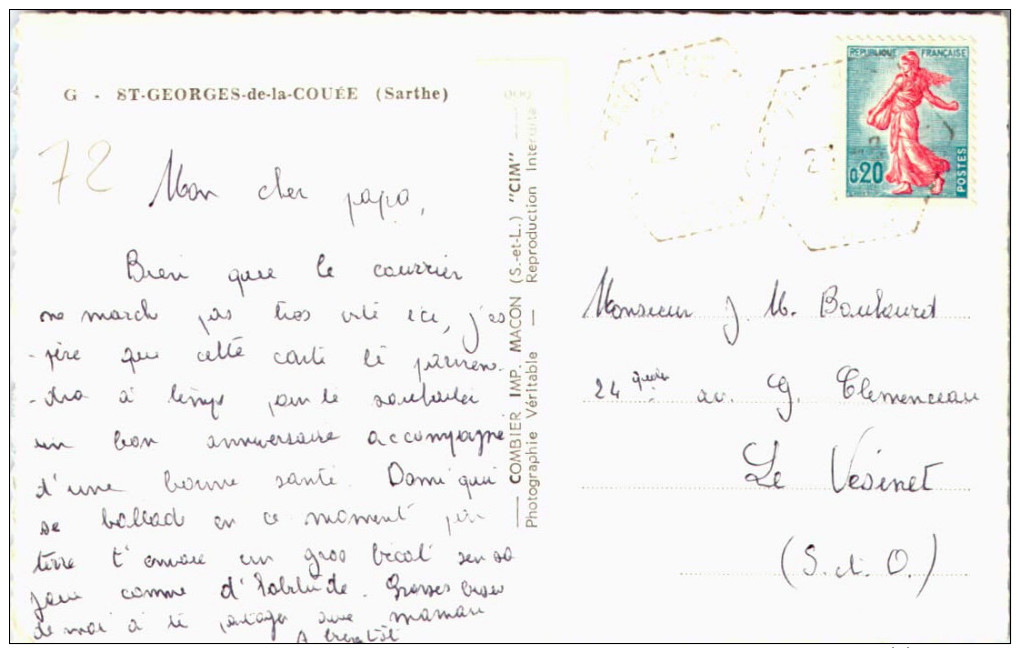 G - ST-GEORGES-de-la-COUÉE (Sarthe)
72
Mon cher papa,
Bien que le courrier
ne march pas très vite ici, j'es
-père que cette carte te parvien-
-dra à temps pour te souhaiter
un bon anniversaire accompagné
d'une bonne santé. Domi qui
se ballad en ce moment par
terre t'envoie un gros bécot sur sa
joue comme d'habitude. Grosses bises
de moi à te partager avec maman
A bientôt
COMBIER IMP. MACON (S.-et-L.) "CIM"
Photographie Véritable — Reproduction Interdite
REPUBLIQUE FRANÇAISE
0,20
POSTES
Monsieur J. M.
24 av. G. Clemenceau
Le Vésinet
(S. et. O.)